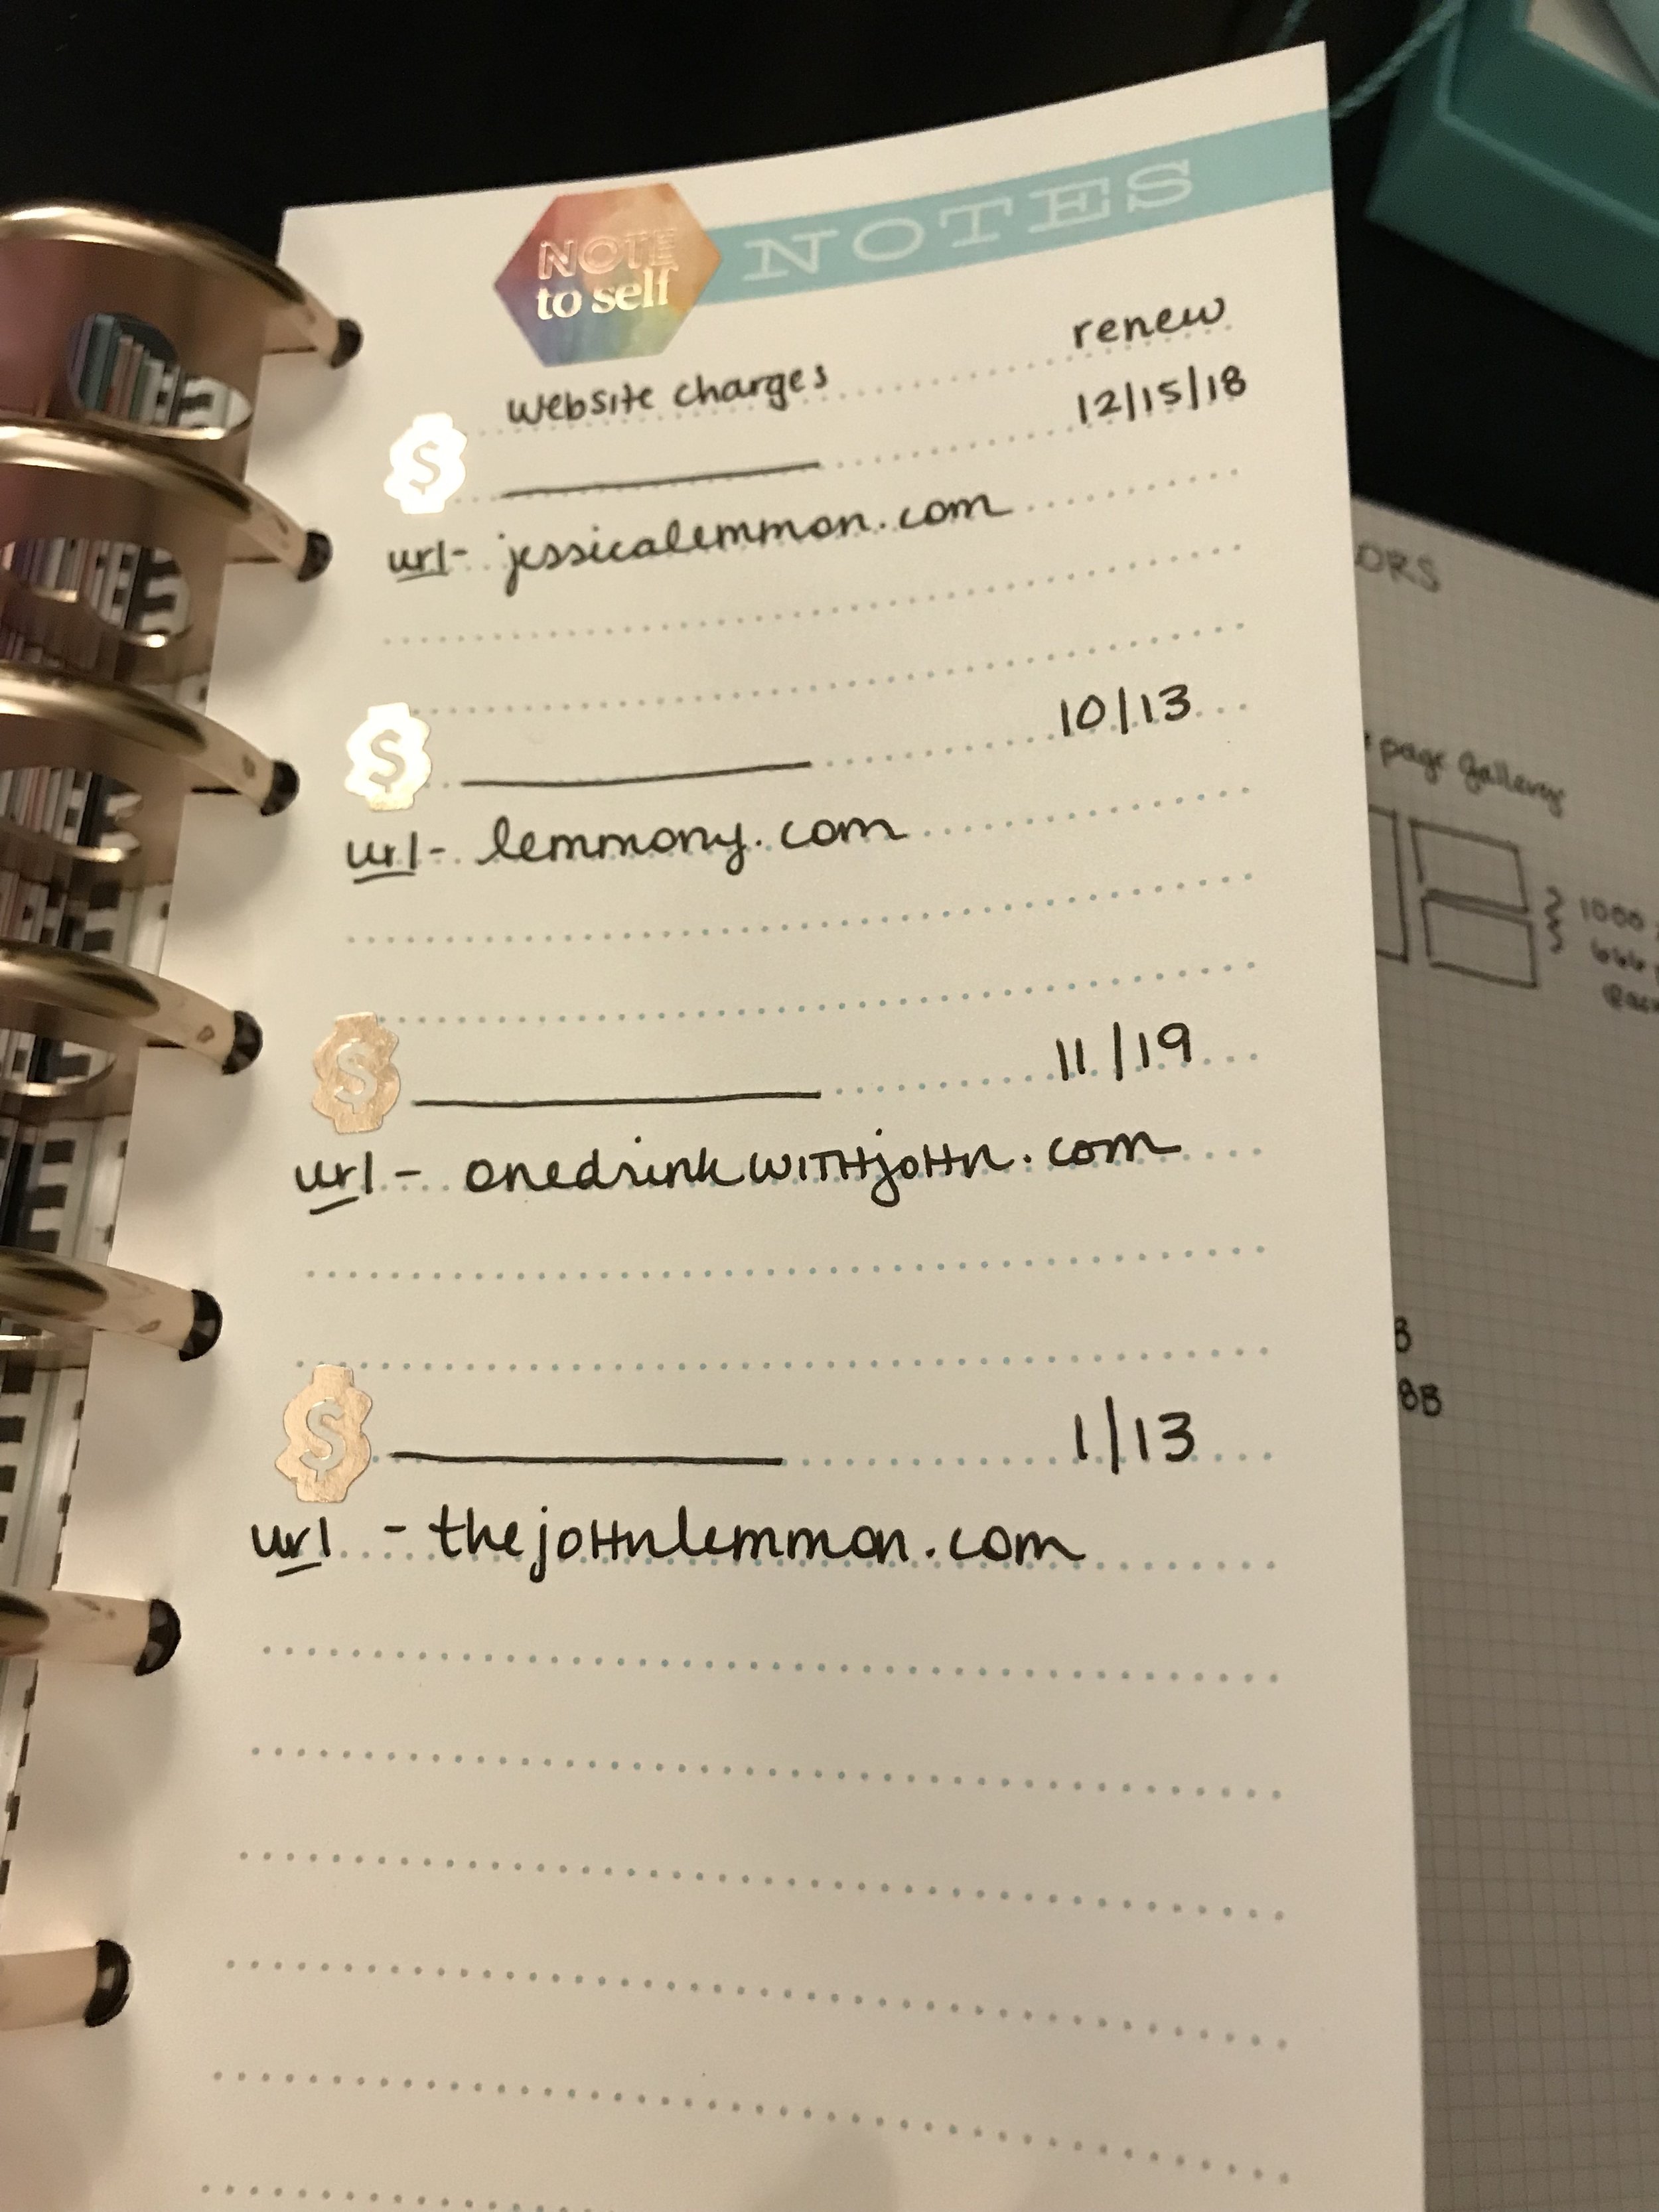 NOTES
NOTE
to self
renew
website charges
12/15/18
$
url- jessicalemmon.com
10/13
$
url- lemmony.com
11/19
$
url- onedrinkwithjohn.com
1/13
$
url - thejohnlemmon.com
ORS
page gallery
1000
666
8B